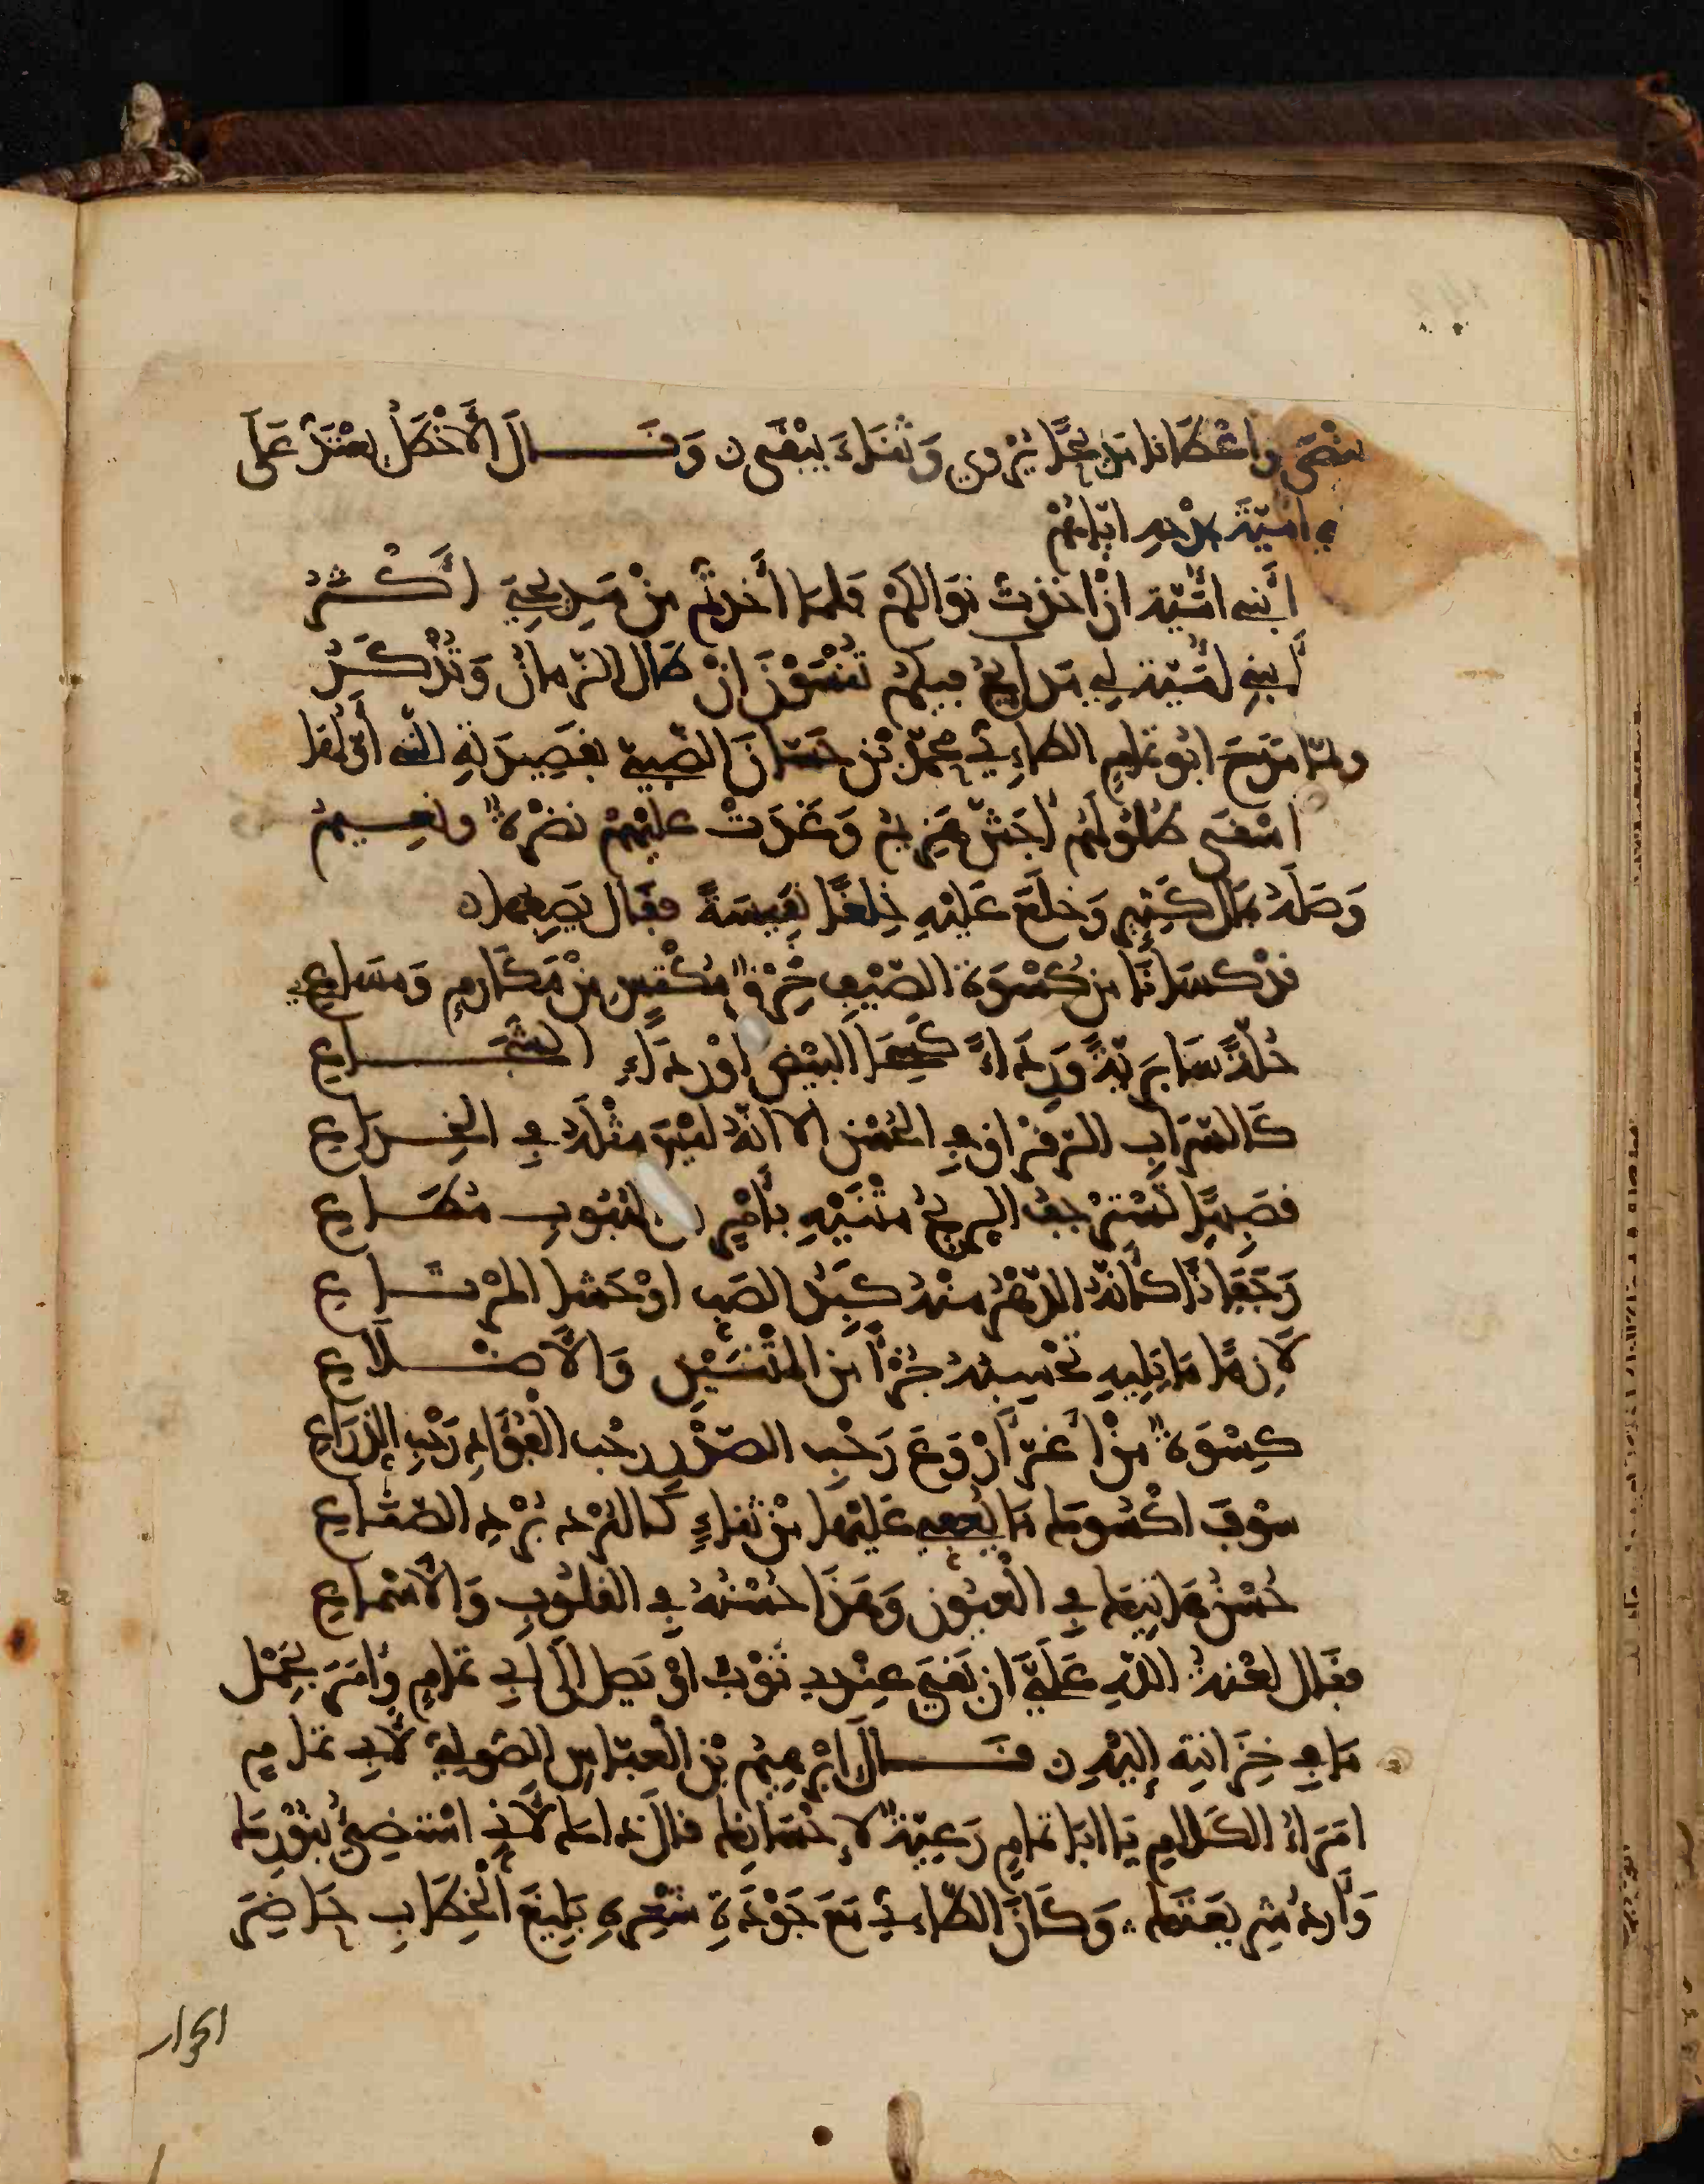 يفنى واعطانا مديحا يروى وثناء يبقى ن وقـــال الأخطل يعتد على
بني امية بمدحه اياهم
أبني أمية ان اخذت نوالكم فلما أخذتم من مديحي أكـثر
أبني أمية لي مدايح فيكم تنسون ان طال الزمان وتذكـر
ولما مدح ابو تمام الطاءي محمد بن حسان الضبي بقصيدته التي أولها
اسقى طلولهم أجش هزيم وغدت عليهم نضرة ونعيم
وصله بمال كثير وخلع عليه خلعة نفيسة فقال يصفها ن
قد كسانا من كسوة الصيف خرق مكتس من مكارم ومساع
حلة سابرية ورداء كسحا البيض أو رداء الشجـــاع
كالسراب الرقراق في الحسن الا انه ليس مثله في الخـداع
قصبيا تسترجف الريح متنيه بأمر من الهبوب مطـاع
رجفانا كأنه الدهر منه كبد الصب أو حشا المرتـاع
لازما ما يليه تحسبه جزءا من المتنتين والأضـلاع
كسوة من أغر أروع رحب الصدر رحب الفؤاد رحب الذراع
سوف اكسوك ما يعفي عليها من ثناء كالبرد برد الصناع
حسن هاتيك في العيون وهذا حسنه في القلوب والأسماع
فقال لعنة الله علي ان بقي عندي ثوب أو يصل إلى أبي تمام وأمر بحمل
ما في خزانته إليه ن قـــال ابرهيم بن العباس الصولي لأبي تمام
امراء الكلام يا ابا تمام رعية لإحسانك قال ذاك لأني استضيء بنورك
وأرد شريعتك ∴ وكان الطاءي مع جودة شعره بليغ الخطاب حاضر
الجواب